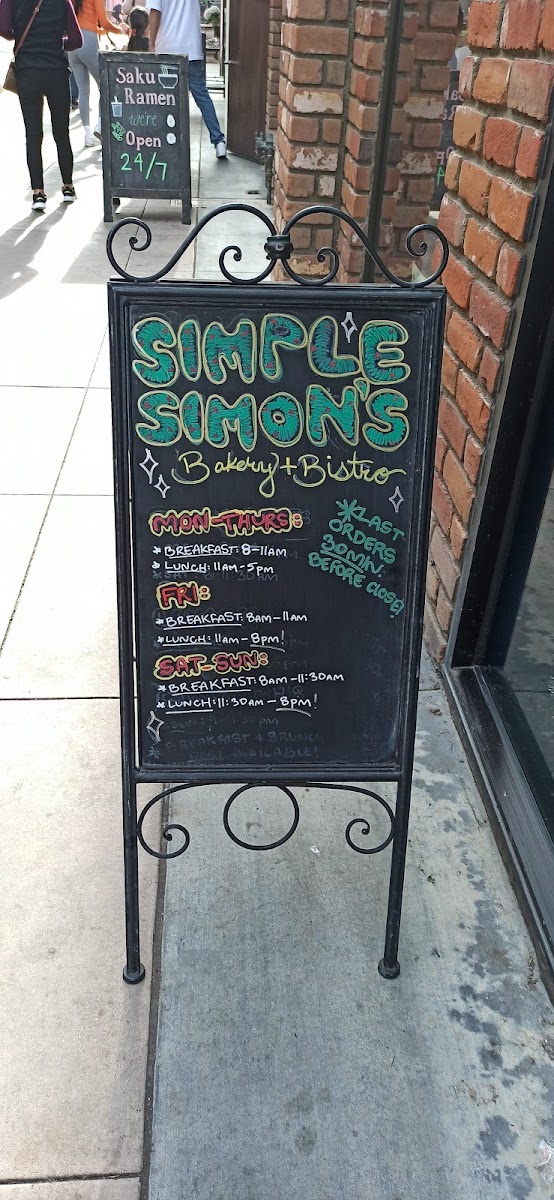 Saku
Ramen
were
Open
24/7
SIMPLE
SIMON'S
Bakery + Bistro
MON-THURS:
* BREAKFAST: 8-11AM
* LUNCH: 11AM-5PM
FRI:
* BREAKFAST: 8AM-11AM
* LUNCH: 11AM-8PM!
SAT-SUN:
* BREAKFAST: 8AM-11:30AM
* LUNCH: 11:30AM-8PM!
*LAST
ORDERS
30MIN.
BEFORE CLOSE!